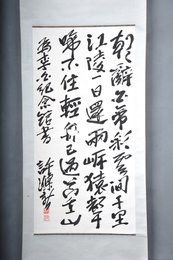 朝辭白帝彩雲間千里
江陵一日還兩岸猿聲
啼不住輕舟已過萬重山
為李白紀念館書
許滌新